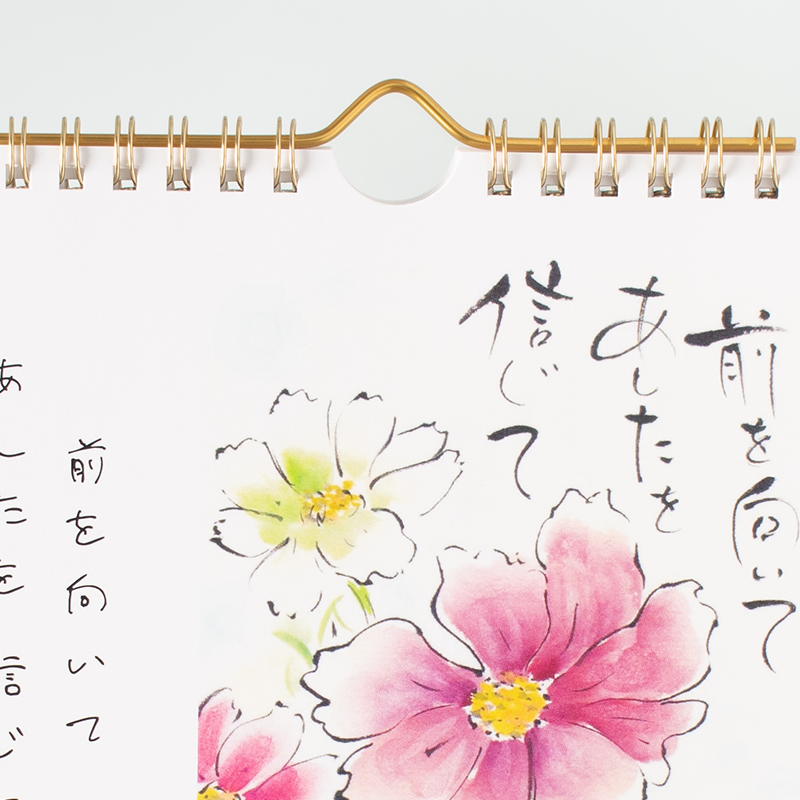 前を向いて
あしたを
信じて
前を向いて
あしたを信じて